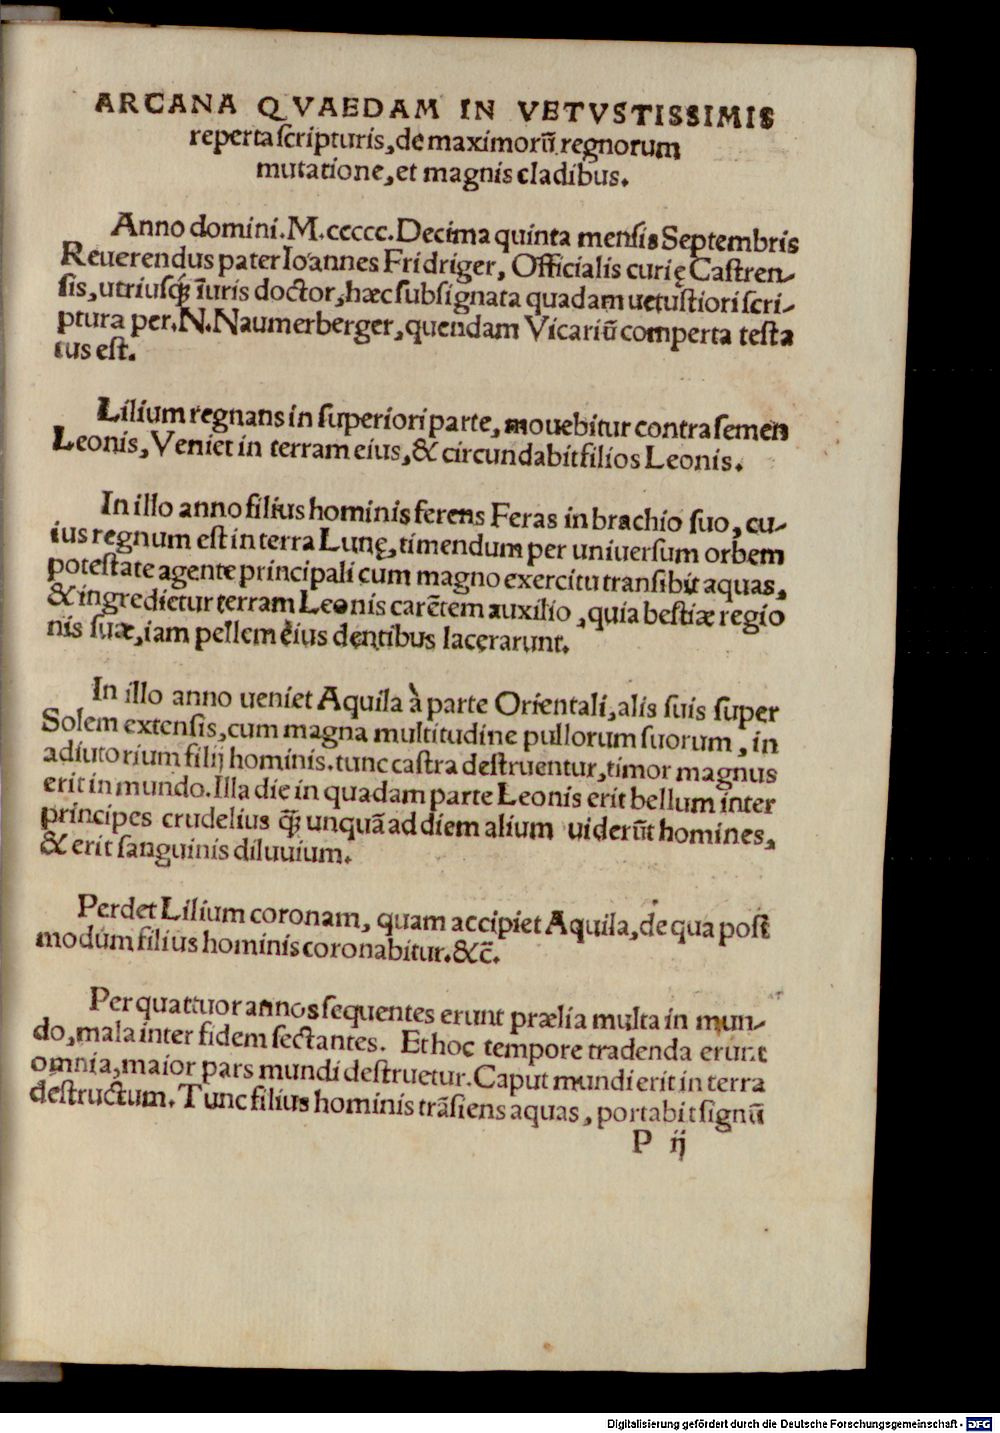 ARCANA QVAEDAM IN VETVSTISSIMIS
reperta ſcripturis, de maximorũ regnorum
mutatione, et magnis cladibus.
Anno domini. M. ccccc. Decima quinta menſis Septembris
Reuerendus pater Ioannes Fridriger, Officialis curię Caſtren-
ſis, utriuſq̃ȝ ĩuris doctor, hæc ſubſignata quadam uetuſtiori ſcri-
ptura per. N. Naumerberger, quendam Vicariũ comperta teſta
tus eſt.
Lilium regnans in ſuperiori parte, mouebitur contra ſemen
Leonis, Veniet in terram eius, & circundabit filios Leonis.
In illo anno filius hominis ferens Feras in brachio ſuo, cu-
ius regnum eſt in terra Lunę, timendum per uniuerſum orbem
poteſtate agente principali cum magno exercitu tranſibit aquas,
& ingredietur terram Leonis carẽtem auxilio, quia beſtiæ regio
nis ſuæ, iam pellem eius dentibus lacerarunt.
In illo anno ueniet Aquila à parte Orientali, alis ſuis ſuper
Solem extenſis, cum magna multitudine pullorum ſuorum, in
adiutorium filij hominis. tunc caſtra deſtruentur, timor magnus
erit in mundo. Illa die in quadam parte Leonis erit bellum inter
principes crudelius q̃ȝ unquã ad diem alium uiderũt homines,
& erit ſanguinis diluuium.
Perdet Lilium coronam, quam accipiet Aquila, de qua poſt
modum filius hominis coronabitur. &c̃.
Per quattuor annos ſequentes erunt prælia multa in mun-
do, mala inter fidem ſectantes. Et hoc tempore tradenda erunt
omnia, maior pars mundi deſtruetur. Caput mundi erit in terra
deſtructum. Tunc filius hominis trãſiens aquas, portabit ſignũ
P ij
Digitalisierung gefördert durch die Deutsche Forschungsgemeinschaft - DFG